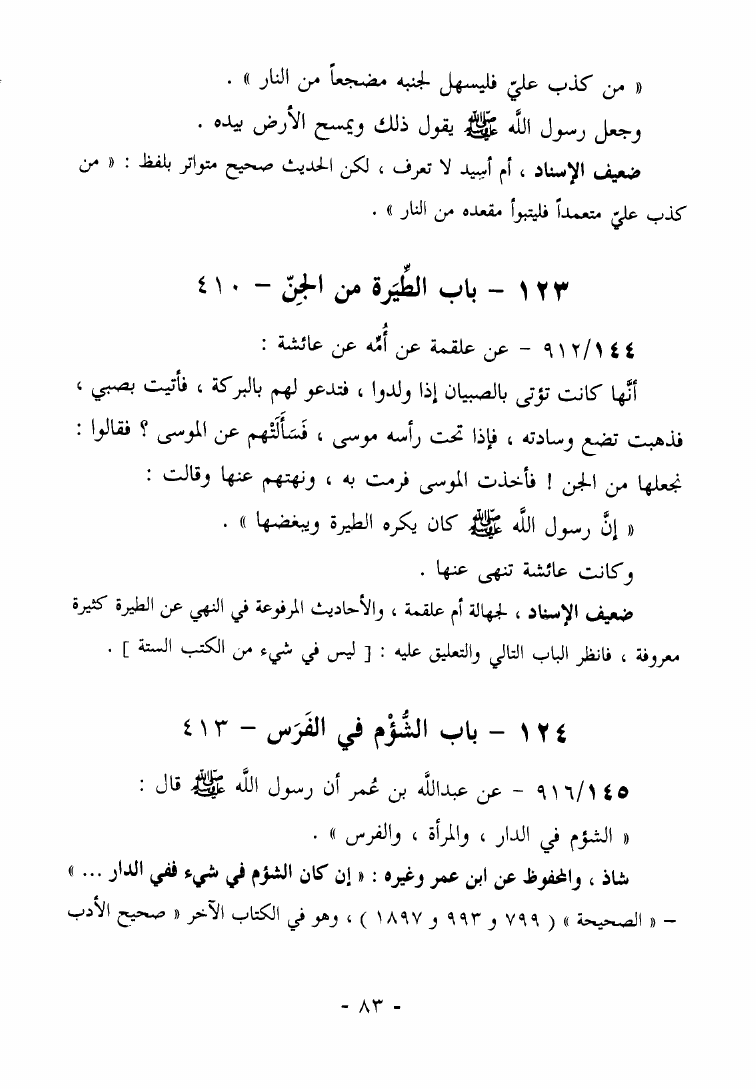 « من كذب عليّ فليسهل لجنبه مضجعاً من النار » .
وجعل رسول اللَّه ﷺ يقول ذلك ويمسح الأرض بيده .
ضعيف الإسناد ، أم أسِيد لا تعرف ، لكن الحديث صحيح متواتر بلفظ : « من
كذب عليّ متعمداً فليتبوأ مقعده من النار » .
١٢٣ - باب الطِّيَرة من الجِنّ - ٤١٠
٩١٢/١٤٤ - عن علقمة عن أُمِّه عن عائشة :
أنَّها كانت تؤتى بالصبيان إذا ولدوا ، فتدعو لهم بالبركة ، فأتيت بصبي ،
فذهبت تضع وسادته ، فإذا تحت رأسه موسى ، فَسَأَلَتْهم عن الموسى ؟ فقالوا :
نجعلها من الجن ! فأخذت الموسى فرمت به ، ونهتهم عنها وقالت :
« إنَّ رسول اللَّه ﷺ كان يكره الطيرة ويبغضها » .
وكانت عائشة تنهى عنها .
ضعيف الإسناد ، لجهالة أم علقمة ، والأحاديث المرفوعة في النهي عن الطيرة كثيرة
معروفة ، فانظر الباب التالي والتعليق عليه : [ ليس في شيء من الكتب الستة ] .
١٢٤ - باب الشُّؤْم في الفَرَس - ٤١٣
٩١٦/١٤٥ - عن عبداللَّه بن عُمر أن رسول اللَّه ﷺ قال :
« الشؤم في الدار ، والمرأة ، والفرس » .
شاذ ، والمحفوظ عن ابن عمر وغيره : « إن كان الشؤم في شيء ففي الدار ... »
– « الصحيحة » ( ٧٩٩ و ٩٩٣ و ١٨٩٧ ) ، وهو في الكتاب الآخر « صحيح الأدب
- ٨٣ -